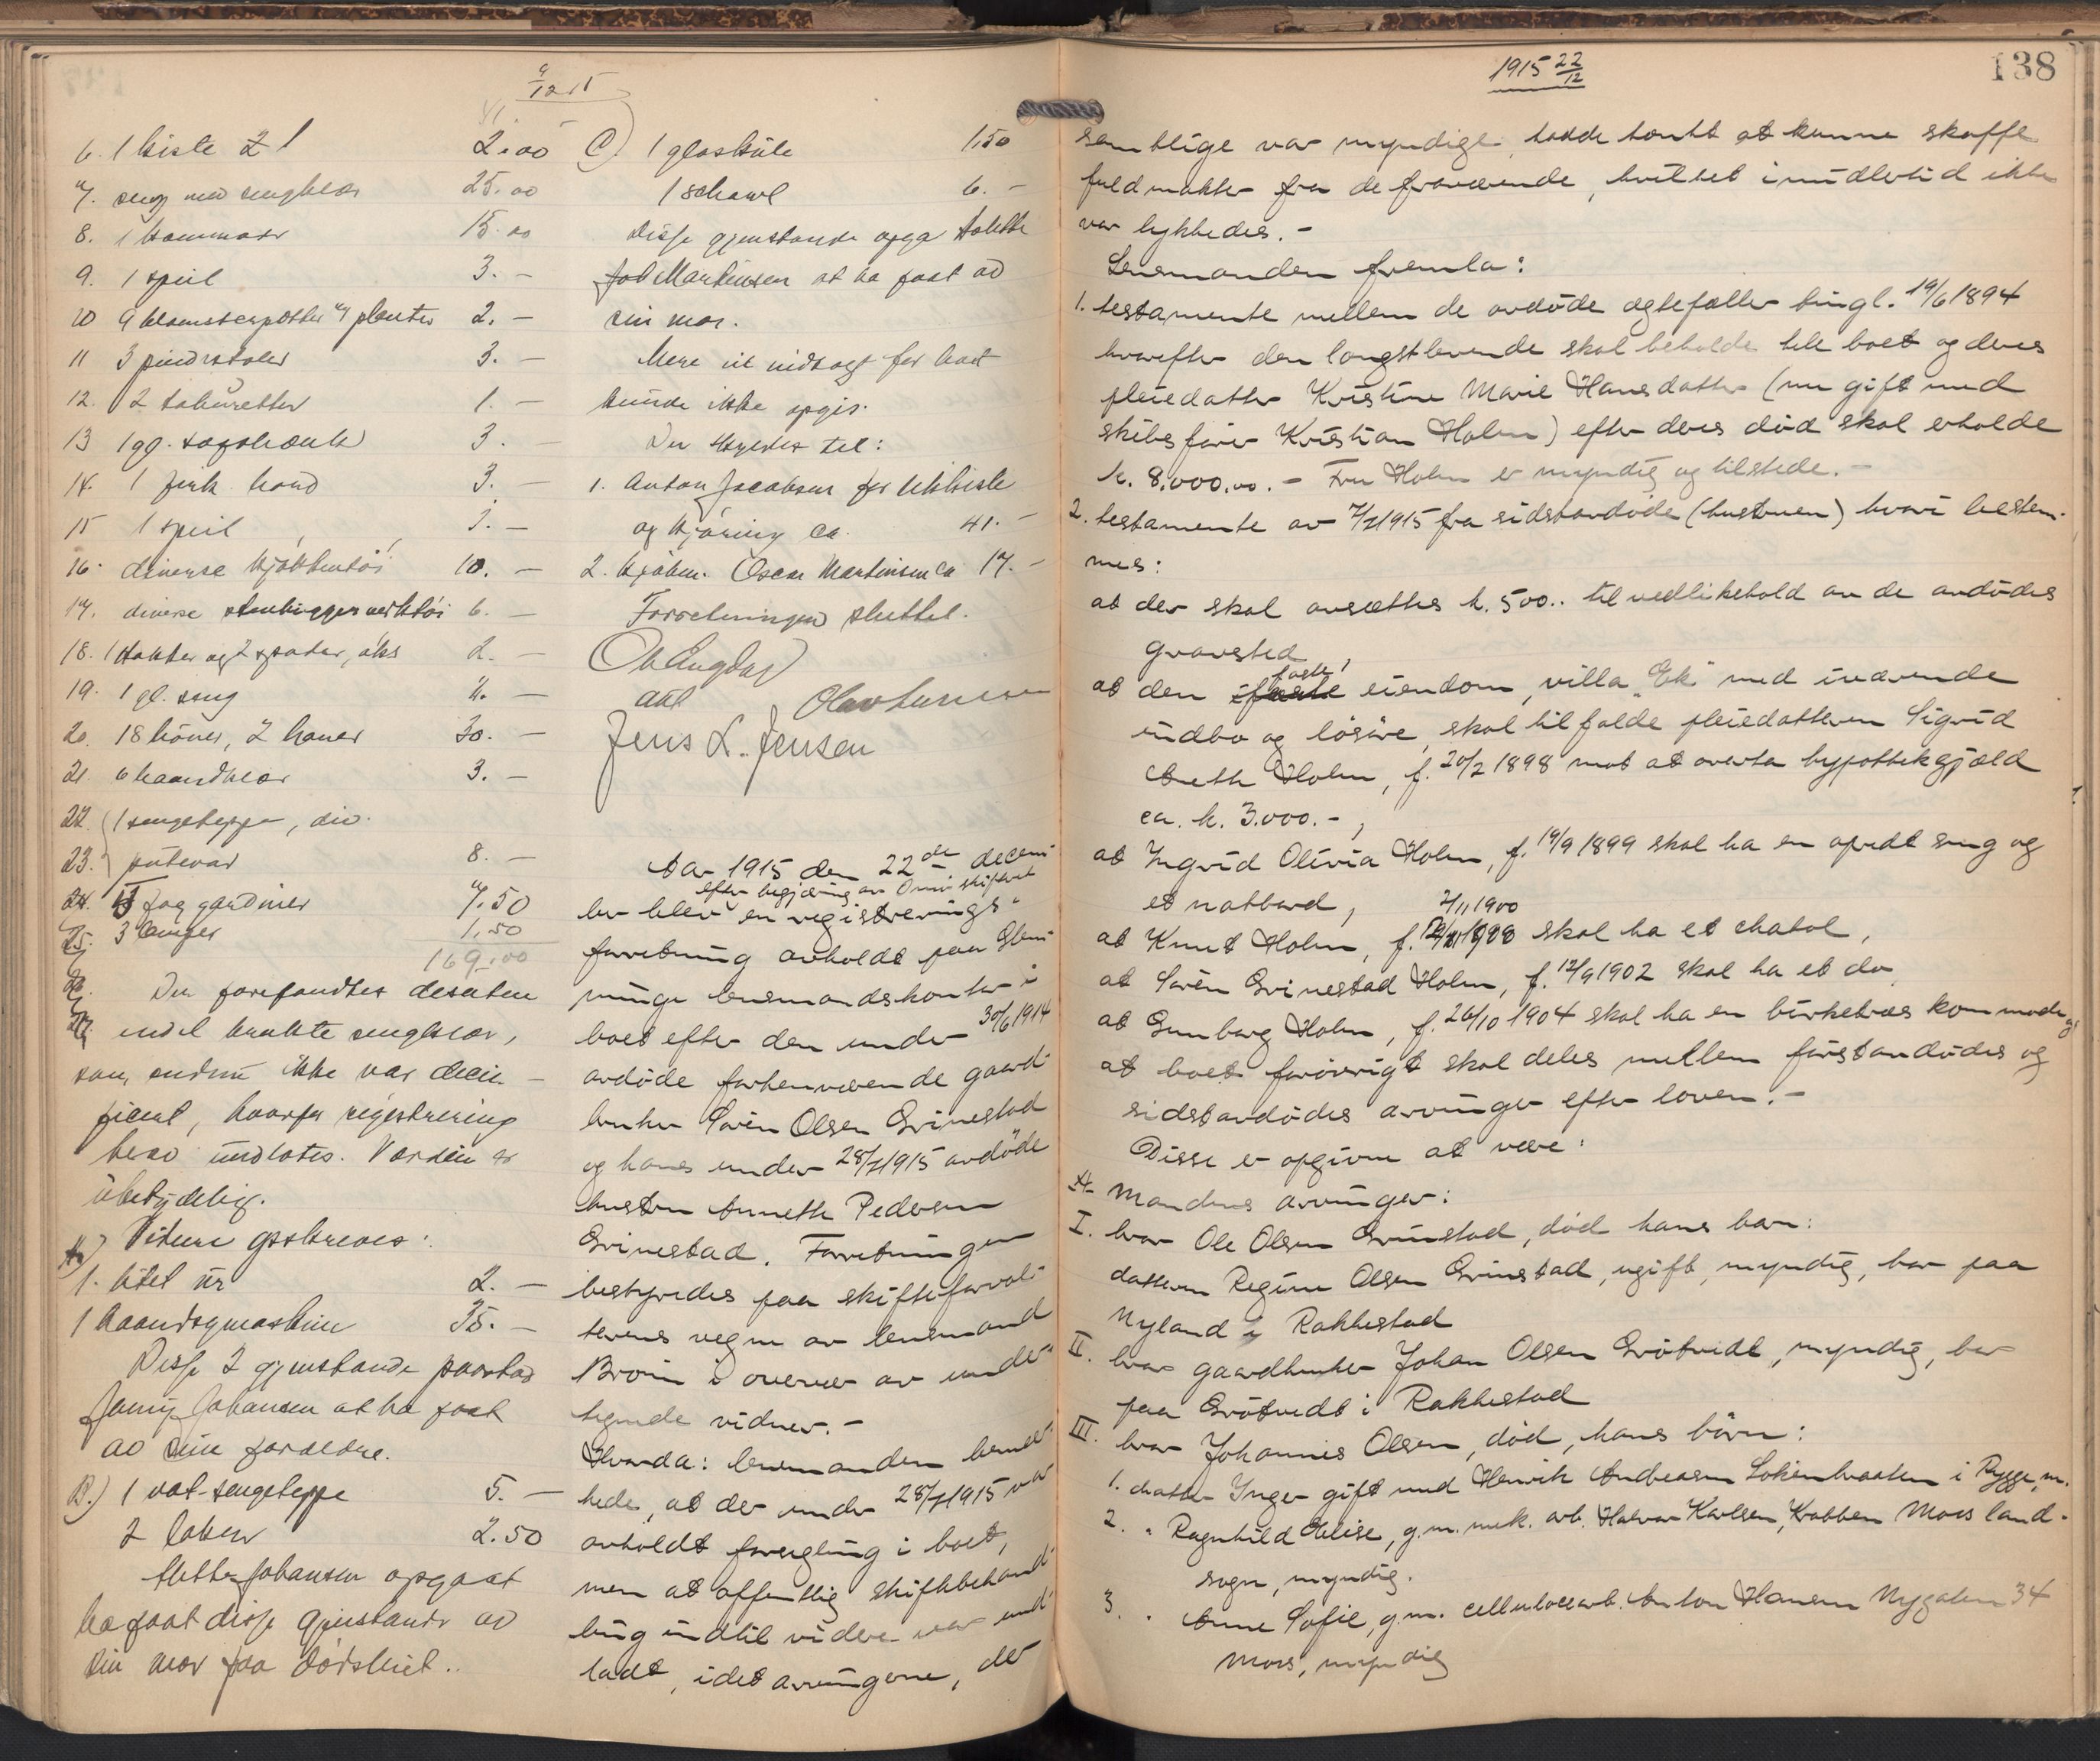 9/12 15
6. 1 kiste 2 l 2.00
7. seng med sengklær 25.00
8. 1 kommode 15.00
9. 1 speil 3.-
10 9 blomsterpotter og planter 2.-
11 3 pindestoler 3.-
12. 2 taburetter 1.-
13 1 gl. 3.-
14. 1 firk. bord 3.-
15 1 speil 3.-
16. diverse kjøkkentøi 10.-
17. diverse stenhuggerverktøi 6.-
18. 1 hakke og 2 spader, øks 2.-
19. 1 gl. seng 4.-
20. 18 høner, 2 haner 30.-
21. 6 haandklær 3.-
22. 1 sengeteppe, div.
23. putevar 8.-
24. fag gardiner 7.50
25. 3 lamper 1.50
169.00
Der forefandtes desuten
endel brukte sengklær,
som endnu ikke var desin-
ficert, hvorfor registrering
herav undlates. Værdien er
ubetydelig.
A) Videre opskreves:
1. litet ur 2.-
1 haandsymaskin 35.-
Disse 2 gjenstande paastod
Jenny Johansen at ha faat
av sine forældre.
B.) 1 vat-sengeteppe 5.-
2 laken 2.50
Johansen opga at
ha faat disse gjenstande av
sin mor paa dødsleiet.
C) 1 glaskule 1,50
1 schawl 6.-
Disse gjenstande opga
Martinsen at ha faat av
sin mor.
Mere at indtægt for boet
kunde ikke opgis.
Der skyldes til:
1. Anton Jacobsen for likkiste
og kjøring ca. 41.-
2. kjøbm. Oscar Martinsen ca 17.-
Forretningen sluttet.
Jens L. Jensen
Aar 1915 den 22de decem-
efter begjæring av Onsø skifteret
ber blev en registrerings-
forretning avholdt paa Glem-
minge lensmandskontor i
boet efter den under 30/6 1914
avdøde forhenværende gaard-
bruker Søren Olsen Grinestad
og hans under 28/7 1915 avdøde
hustru Annette Pedersen
Grinestad. Forretningen
bestyredes paa skifteforval-
terens vegne av lensmand
Broin i overvær av under-
tegnede vidner.-
Hvorda: lensmanden bemer-
kede, at der under 28/7 1915 var
avholdt forsegling i boet,
men at offentlig skiftebehand-
ling indtil videre var und-
ladt, idet arvingerne, der
1915 22/12
138
samtlige var myndige, hadde tænkt at kunne skaffe
fuldmakter fra de fraværende, hvilket imidlertid ikke
var lykkedes.-
Lensmanden fremla:
1. testamente mellem de avdøde ægtefæller tingl. 19/6 1894
hvorefter den længstlevende skal beholde hele boet og deres
pleiedatter Kristine Marie Hansdatter (nu gift med
skibsfører Kristian Holm) efter deres død skal erholde
k. 8.000.00.- Fru Holm er myndig og tilstede.-
2. testamente av 7/7 1915 fra sidstavdøde (hustruen) hvori bestem-
mes:
at der skal avsættes k. 500.. til vedlikehold av de avdødes
gravsted,
at den faste eiendom, villa "Ek" med iværende
indbo og løsøre, skal tilfalde pleiedatteren Sigrid
Anette Holm, f. 20/2 1898 mot at overta hypotekgjæld
ca. k. 3.000.-,
at Ingrid Olivia Holm, f. 19/9 1899 skal ha en opredt seng og
et natbord,
2/11 1900
at Knut Holm, f. skal ha et chatol,
at Søren Grinestad Holm, f. 12/9 1902 skal ha et do,
at Gunborg Holm, f. 26/10 1904 skal ha en birketræs kommode og
at boet forøvrigt skal deles mellem førstavdødes og
sidstavdødes arvinger efter loven.-
Disse er opgivne at være:
A. Mandens arvinger:
I. bror Ole Olsen Grinstad, død hans barn:
datteren Regine Olsen Grinstad, ugift, myndig, bor paa
Nyland i Rakkestad
II. bror gaardbruker Johan Olsen Grøtvedt, myndig, bor
paa Grøtvedt i Rakkestad
III. bror Johannes Olsen, død, hans børn:
1. datter Inger gift med Henrik Andreasen Lokenbraaten i Rygge, m.
2. " Ragnhild Elise, g.m. mek. arb. Halvor Karlsen, Krabben Moss land-
sogn, myndig.
3. " Anne Sofie, g.m. cellulosearb. Anton Hansen Nygaten 34
Moss, myndig